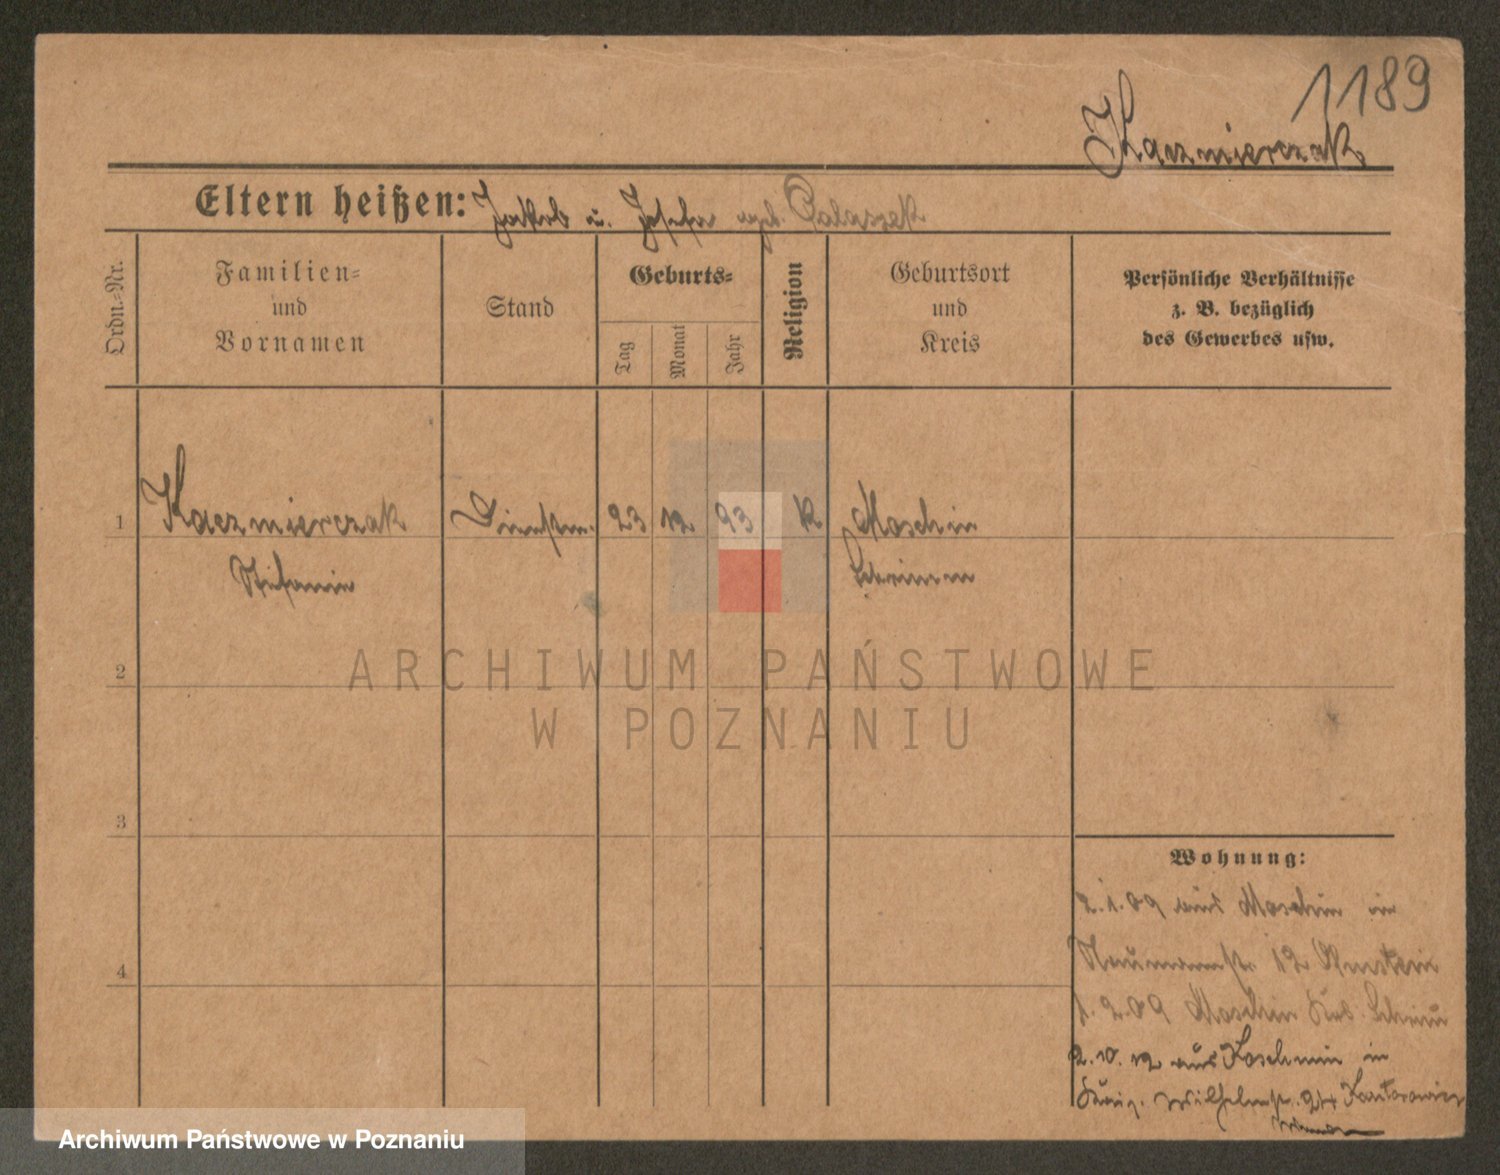 1189
Kaczmierczak
Eltern heißen: Jakob u. Josefa geb. Palaszek
Ordn.=Nr.
Familien=
und
Vornamen
Stand
Geburts=
Tag
Monat
Jahr
Religion
Geburtsort
und
Kreis
Persönliche Verhältnisse
z. B. bezüglich
des Gewerbes usw.
1 Kaczmierczak Dienstm. 23 12 93 K Moschin
Stefanie Schrimm
2
3
4
Wohnung:
2.1.09 aus Moschin in
Neumannstr. 12
1.2.09 Moschin
2.10.12 aus Koschmin in
Wilhelmstr. 24 Kantorowicz
ARCHIWUM PAŃSTWOWE
W POZNANIU
Archiwum Państwowe w Poznaniu